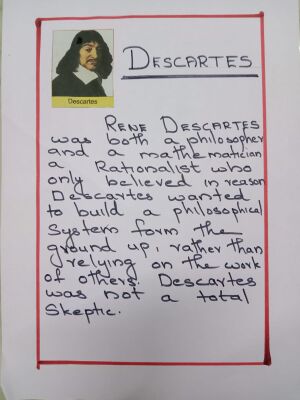 Descartes
DESCARTES
RENE DESCARTES
was both a philosopher
and a mathematician
a Rationalist who
only believed in reason
Descartes wanted
to build a philosophical
System form the
ground up, rather than
relying on the work
of others. Descartes
was not a total
Skeptic.